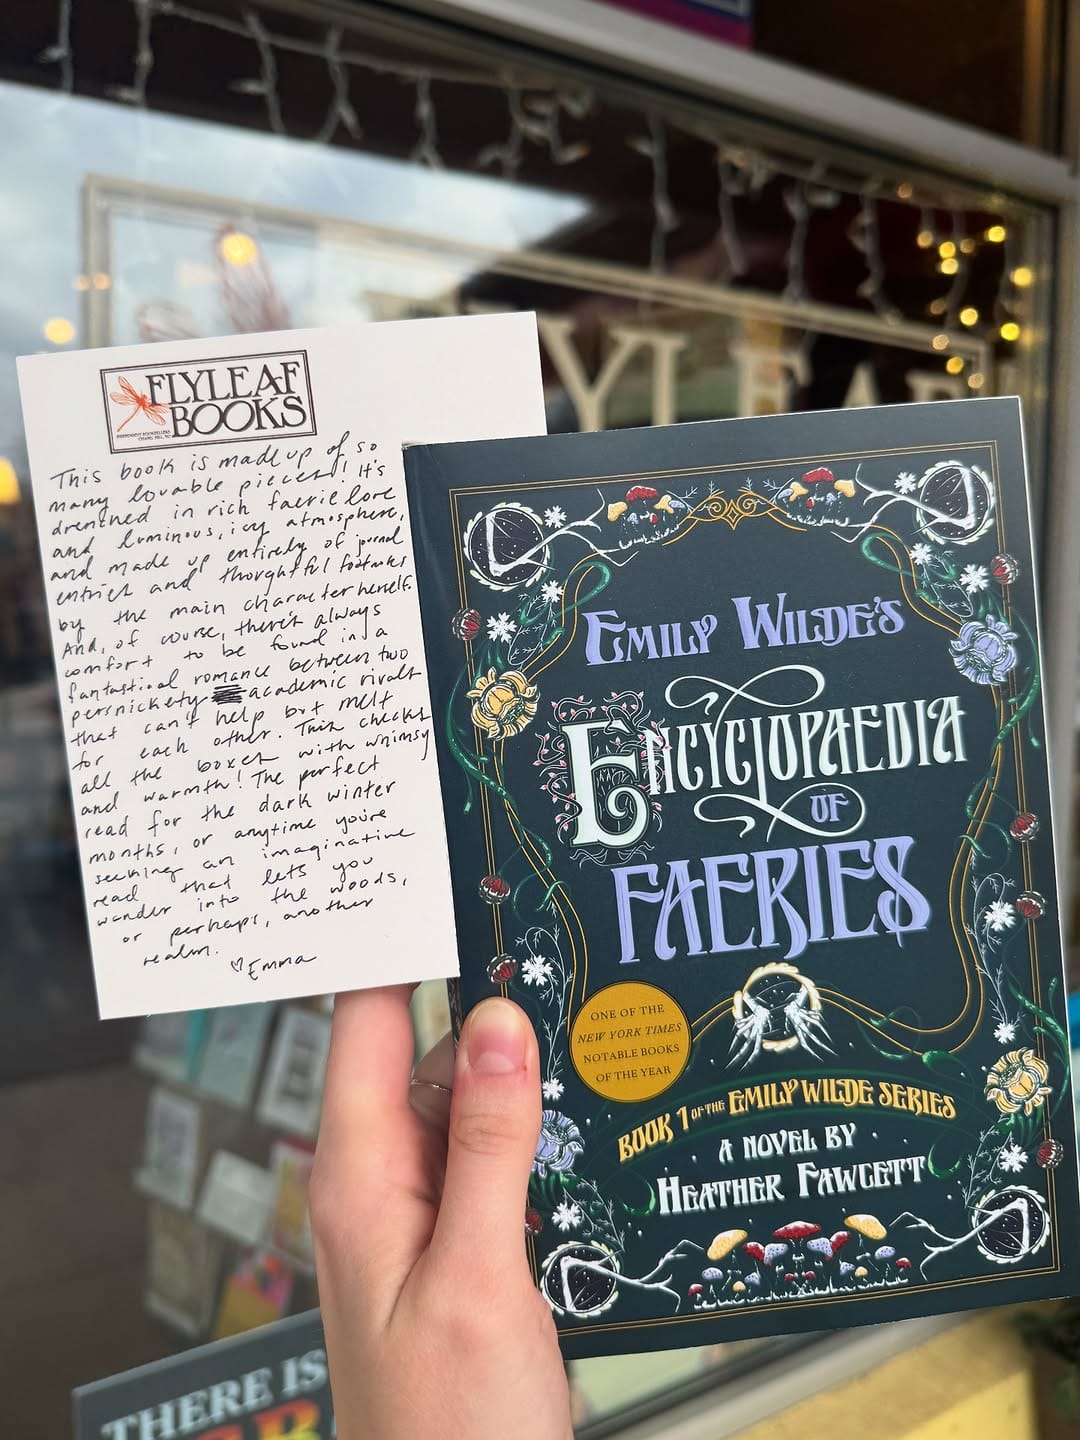 FLYLEAF
BOOKS
INDEPENDENT BOOKSELLERS
CHAPEL HILL, NC
This book is made up of so
many lovable pieces! It's
drenched in rich faerie lore
and luminous, icy atmosphere,
and made up entirely of journal
entries and thoughtful footnotes
by the main character herself.
And, of course, there's always
comfort to be found in a
fantastical romance between two
persnickety academic rivals
that can't help but melt
for each other. This checks
all the boxes with whimsy
and warmth! The perfect
read for the dark winter
months, or anytime you're
seeking an imaginative
read that lets you
wander into the woods,
or perhaps, another
realm.
♡Emma
EMILY WILDE'S
ENCYCLOPAEDIA
OF
FAERIES
ONE OF THE
NEW YORK TIMES
NOTABLE BOOKS
OF THE YEAR
BOOK 1 OF THE EMILY WILDE SERIES
A NOVEL BY
HEATHER FAWCETT
THERE IS